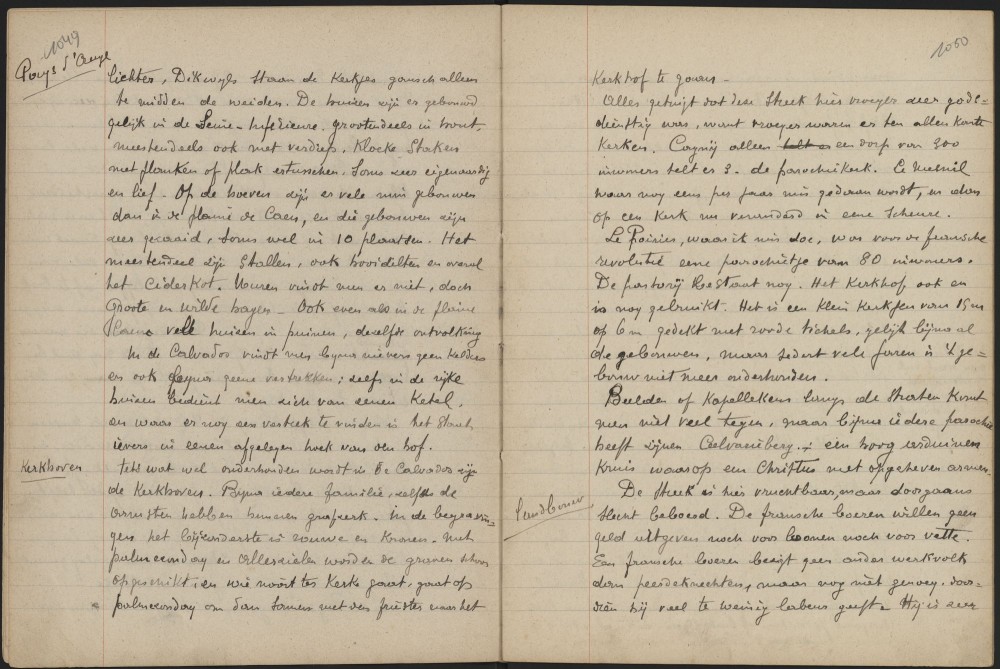 1049
Pays d'Auge
lichter, Dikwyls staan de kerkjes gansch alleen
te midden de weiden. De huizen zijn er gebouwd
gelijk in de Seine-Inferieure, grootendeels in hout,
meestendeels ook met verdiep. Kloeke staken
met planken of plak ertusschen. Soms zeer eigenaardig
en lief - Op de hoeven zijn er vele min gebouwen
dan in de plaine de Caen, en die gebouwen zijn
zeer gezaaid, soms wel in 10 plaatsen. Het
meestendeel zijn stallen, ook hooidilten en overal
het ciderkot. Muren vindt men er niet, doch
groote en wilde hagen - Ook even als in de plaine
Caen vele huizen in puinen, dezelfde ontvolking
In de Calvados vindt men bijna nievers geen kelders
en ook bijna geene vertrekken; zelfs in de rijke
huizen bedient men zich van eenen ketel,
en waar er nog een vertrek te vinden is het staat
ievers in eenen afgelegen hoek van den hof.
Kerkhoven
Iets wat wel onderhouden wordt in de Calvados zijn
de Kerkhoven. Bijna iedere familie, zelfs de
armsten hebben hunnen grafzerk. In de begravin-
gen het bijzonderste is rouwe en kronen. Met
palmzondag en Allerzielen worden de graven schoon
opgeschikt, en wie nooit ter kerk gaat, gaat op
palmzondag om dan samen met den priester naar het
1050
Kerkhof te gaan -
Alles getuigt dat deze streek hier vroeger zeer gods=
dienstig was, want vroeger waren er ten allen kante
kerken. Cagnij alleen een dorp van 300
inwoners telt er 3 - de parochikerk. Le Mesnil
waar nog eens per jaar mis gedaan wordt, en dan
op een kerk nu veranderd in eene scheure.
Le Poirier, waar ik mis doe, was voor de fransche
revolutie eene parochietje van 80 inwoners.
De pastorij bestaat nog. Het Kerkhof ook en
is nog gebruikt. Het is een klein kerkjen van 15 m
op 6 m gedekt met roode tichels, gelijk bijna al
de gebouwen, maar sedert vele jaren is 't ge=
bouw niet meer onderhouden.
Beelden of Kapellekens langs de straten komt
men niet veel tegen, maar bijna iedere parochie
heeft zijnen Calvarieberg: een hoog arduinen
Kruis waarop een Christus met opgeheven armen.
Landbouw
De streek is hier vruchtbaar, maar doorgaans
slecht beboerd. De fransche boeren willen geen
geld uitgeven noch voor loonen noch voor vette.
Een fransche boeren bezigt geen ander werkvolk
dan peerdeknechten, maar nog niet genoeg. Voor-
dien hij veel te weinig labeur geeft. Hij is zeer